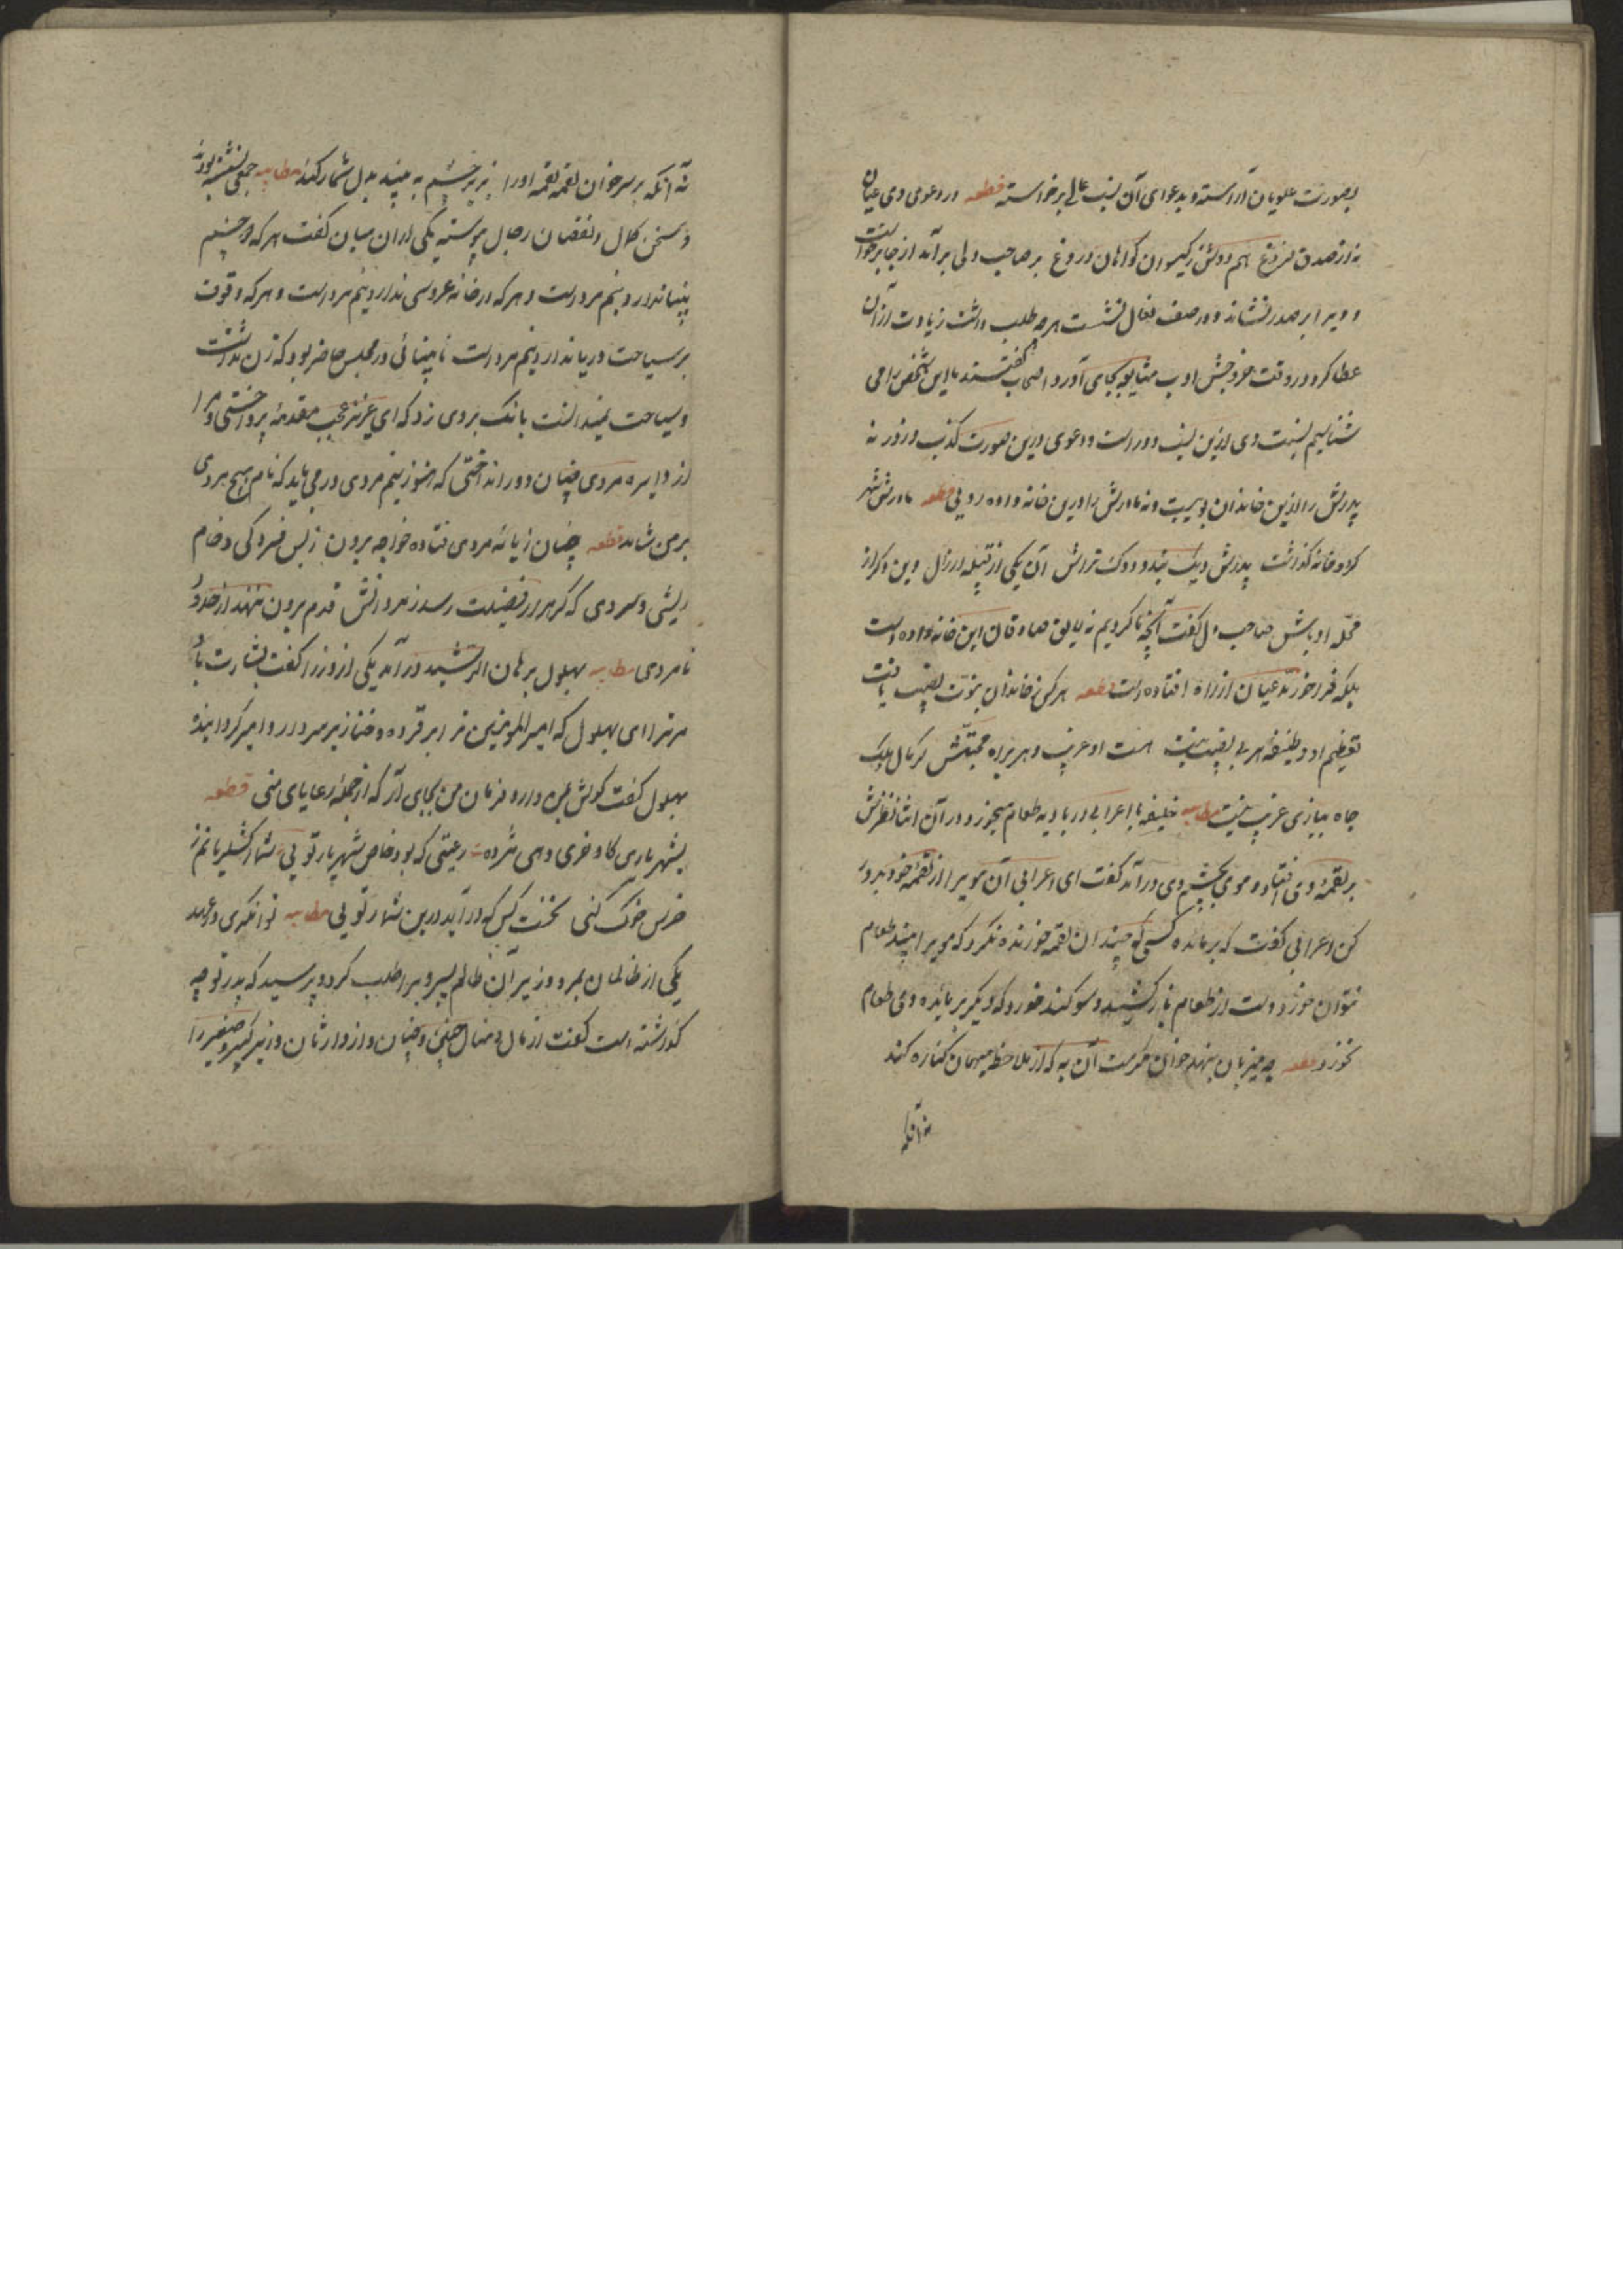 بصورت علویان آراسته و بدعوای آن نسب عالی برخواسته قطعه در دعوی وی عیان
نه از صدق فروغ هم دوش ز کیسوان کواهان دروغ بر صاحب دلی برآمد از جا برخواست
و ویرا بر صدر نشاند و در صف نعال نشست هرچه طلب داشت زیادت از آن
عطا کرد و در وقت خروجش ادب مشایعه بجای آورد اصحاب گفتند ما این شخص را می
شناسیم نسبت وی ازین نسب دور است و دعوی درین صورت کذب و زور نه
پدرش را ازین خاندان بویست و نه مادرش را درین خانه واده رویی قطعه مادرش شهر
کرد و خانه گذاشت پدرش دیک بند و دوک تراش آن یکی از قبیله ارزال وین دکر از
محله اوباش صاحب دل گفت آنچه ما کردیم نه لایق صادقان این خانه واده است
بلکه فراخور مدعیان از راه افتاده است قطعه هر کس ز خاندان نبوت نصیب یافت
تعظیم او وظیفه هر بی نصیب نیست هست او غریب و هر براه محبتش کر مال و ملک
جاه ببازی غریب نیست مطایبه خلیفه با اعرابی در بادیه طعام میخورد در آن اثنا نظرش
بر لقمهٔ وی افتاد و مویی بچشم وی درآمد گفت ای اعرابی آن موی را از لقمهٔ خود بدور
کن اعرابی گفت که بر مائده کسی که چندان لقمه خورنده نگرد که موی را بیند طعام
نتوان خورد دست از طعام باز کشید و سوکند خورد که دیکر بر مائده وی طعام
نخورد قطعه چو میزبان بنهد خوان مکرمت آن به که از ملاحظه میهمان کناره کند
نه آنکه
نه آنکه بر سر خوان لقمه لقمه اورا بزیر چشم به بیند بدل شمار کند مطایبه جمعی نشسته بودند
و سخن کمال و نقصان رجال پیوسته یکی از ان میان گفت هر که دو چشم
بینا ندارد نیم مرد است و هر که در خانه عروسی ندارد نیم مرد است و هر که وقوت
بر سیاحت دریا ندارد نیم مرد است نابینائی در مجلس حاضر بود که زن نداشت
و سیاحت نمیدانست بانک بر وی زد که ای عزیز عجب مقدمهٔ پرداختی و مرا
از دایره مردی چنان دور انداختی که هنوز نیم مردی در می باید که نام هیچ مردی
بر من شاید قطعه چنان ز پایهٔ مردی فتاده خواجه برون ز بس فسردکی و خام
ریشی و سردی که کر هزار فضیلت رسد ز مردانش قدم برون ننهد از حدود
نامردی مطایبه بهلول بر هارون الرشید درآمد یکی از وزرا گفت بشارت باد
مر ترا ای بهلول که امیر المومنین ترا بر قرده و خنازیر سردار و امیر کردانیده
بهلول گفت کوش بمن دار و فرمان من بجای آر که از جمله رعایای منی قطعه
بشهریاری کاو و خری دهی مژده رعیتی که بود خاص شهریار تویی شمار لشکر یا نم ز
خرس خوک کنی نخست کس که درآید درین شمار تویی مطایبه توانکری در عهد
یکی از ظالمان بمرد وزیر آن ظالم پسر ویرا طلب کرد و پرسید که پدر تو چه
گذاشته است گفت از مال و منال چنین و چنان و از وارثان وزیر کبیر و صغیر را